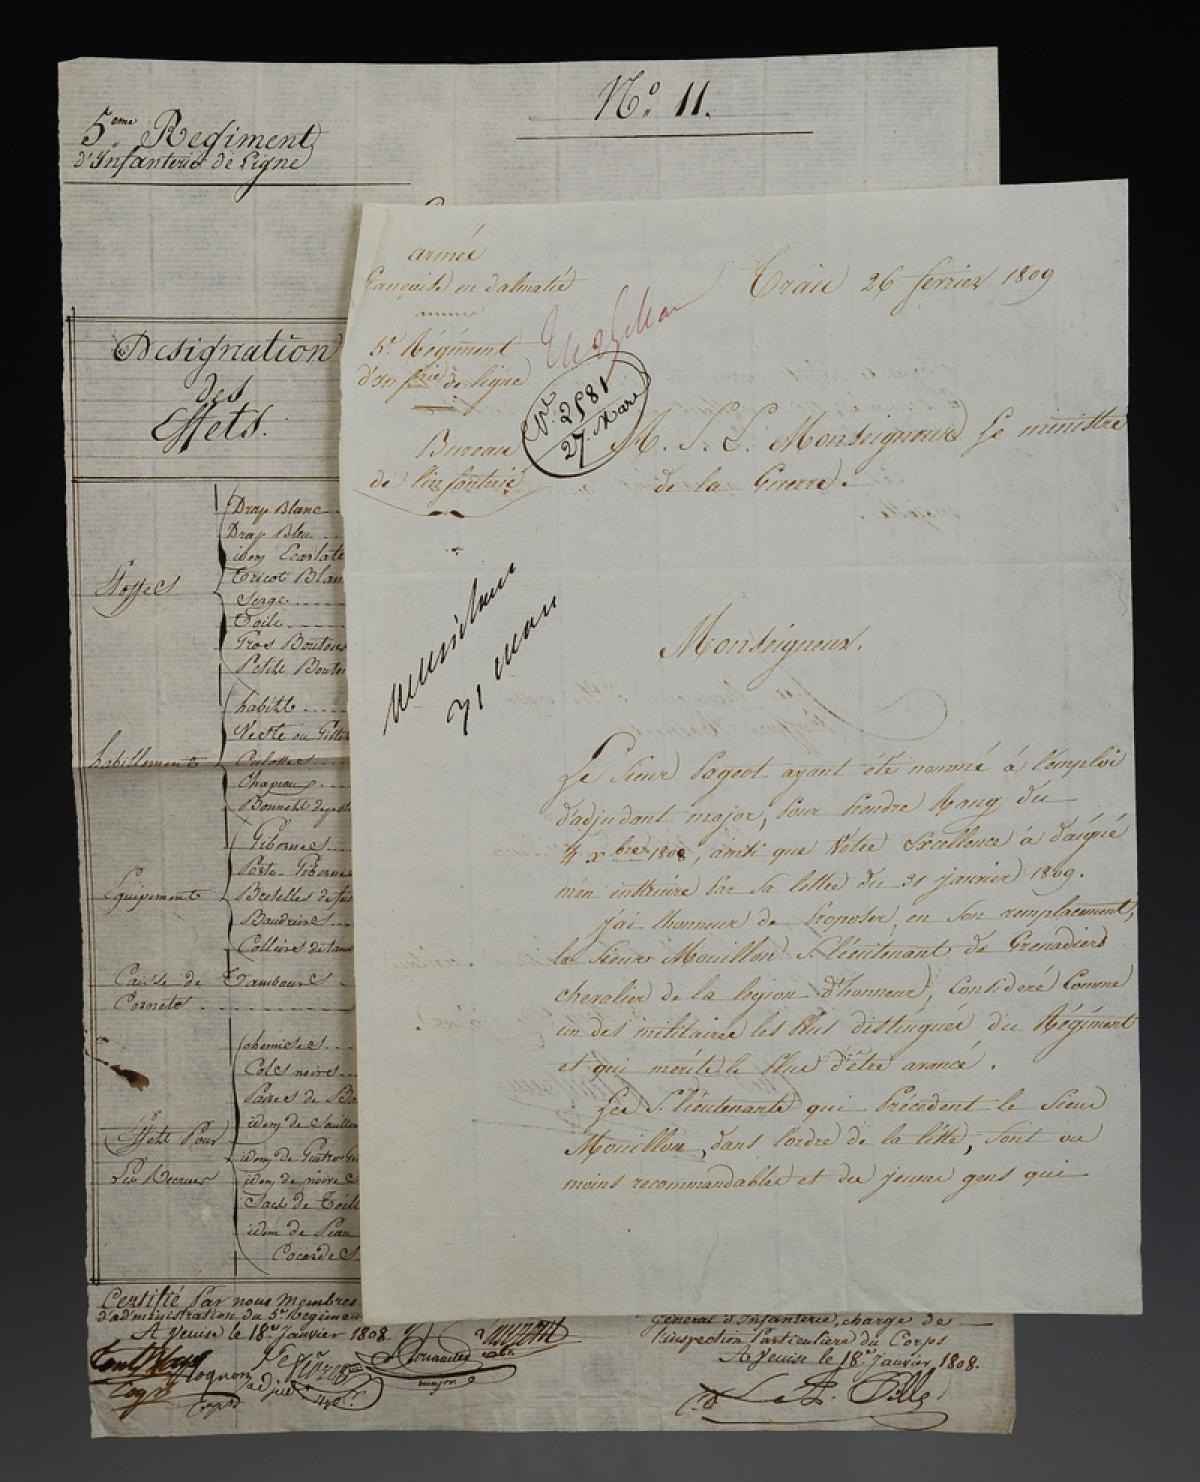 N.º 11.
5.eme Regiment
d'Infanterie de Ligne
Designation
des
Effets.
Etoffes
Drap Blanc
Drap Bleu
idem Ecarlate
Tricot Blan
Serge
Toile
Gros Boutons
Petits Bouton
habillement
habits
Veste ou Gillet
Culottes
Chapeau
Bonnets de police
Equipement
Gibernes
Porte-Giberne
Bretelles de fus
Baudriers
Colliers de tam
Caisse de Tambours
Cornets
Effets Pour
Les Recrues
chemises
Cols noirs
Paires de B
idem de Soulier
idem de Guetres Gri
idem de noires
Sacs de Toile
idem de Peau
Cocardes
Certifié Par nous Membres
d'administration du 5.e Regimen
A Venise le 18.e Janvier 1808.
major
Général d'Infanterie, chargé de
l'inspection Particuliere du Corps
A Venise le 18.e Janvier 1808.
armée
française en dalmatie
5.e Régiment
d'Infrie de ligne
Bureau
de l'infanterie
Trau 26 fevrier 1809
2581
27. Mars
A. S. E. Monseigneur Le ministre
de la Guerre.
31 mars
Monseigneur.
Le Sieur Pageot ayant été nommé à l'emploi
d'adjudant major, Pour Prendre Rang du
4 xbre 1808, ainsi que Votre Excellence à daigné
m'en instruire Par Sa lettre du 31 janvier 1809.
j'ai l'honneur de Proposer, en son remplacement,
le Sieur Mouillon S. lieutenant de Grenadiers
chevalier de la légion d'honneur, Considéré Comme
un des militaires les Plus distingués du Régiment
et qui mérite le Plus d'être avancé.
Les S. lieutenants qui Précédent le Sieur
Mouillon, dans l'ordre de la liste, sont ou
moins recommandables et des jeunes gens qui